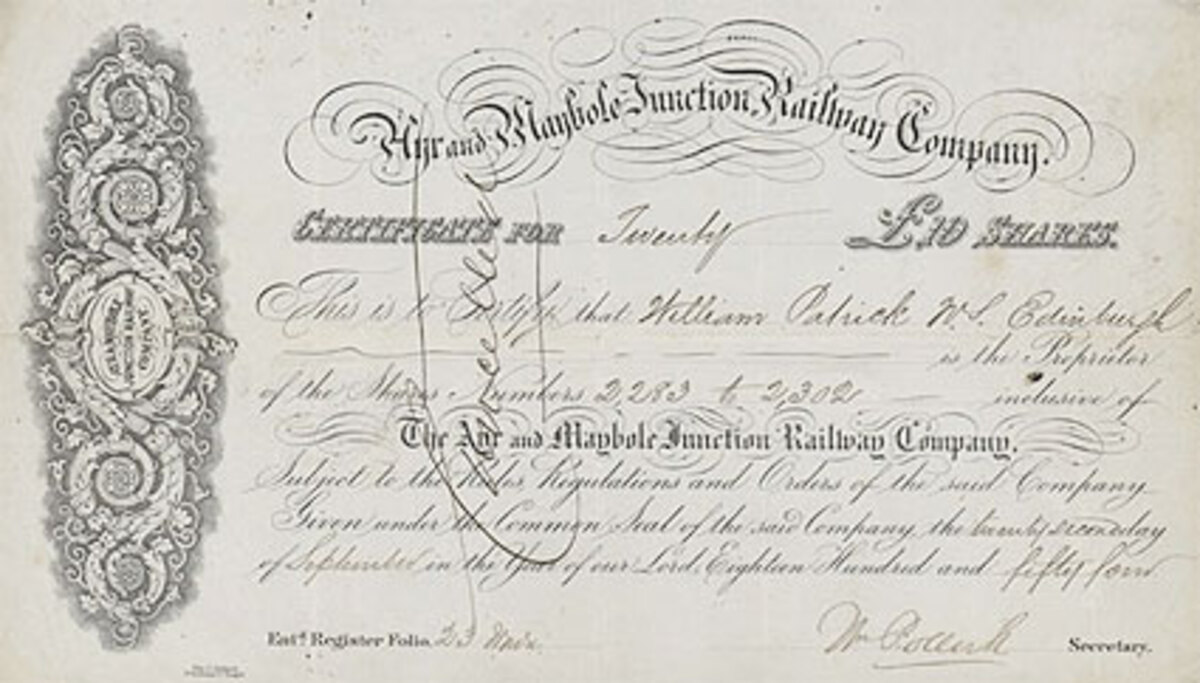 Ayr and Maybole Junction Railway Company.
CERTIFICATE FOR Twenty £10 SHARES.
This is to Certify that William Patrick W.S. Edinburgh
is the Proprietor
of the Shares Numbers 2,283 to 2,302 inclusive of
The Ayr and Maybole Junction Railway Company.
Subject to the Rules, Regulations and Orders of the said Company
Given under the Common Seal of the said Company the twenty second day
of September in the Year of our Lord Eighteen Hundred and fifty four
Entd. Register Folio. 23
Wm Pollock Secretary.
Cancelled
AYR & MAYBOLE
JUNCTION RAILWAY
COMPANY